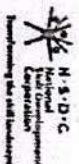 N·S·D·C
National
Skill Development
Corporation
Transforming the skill landscape